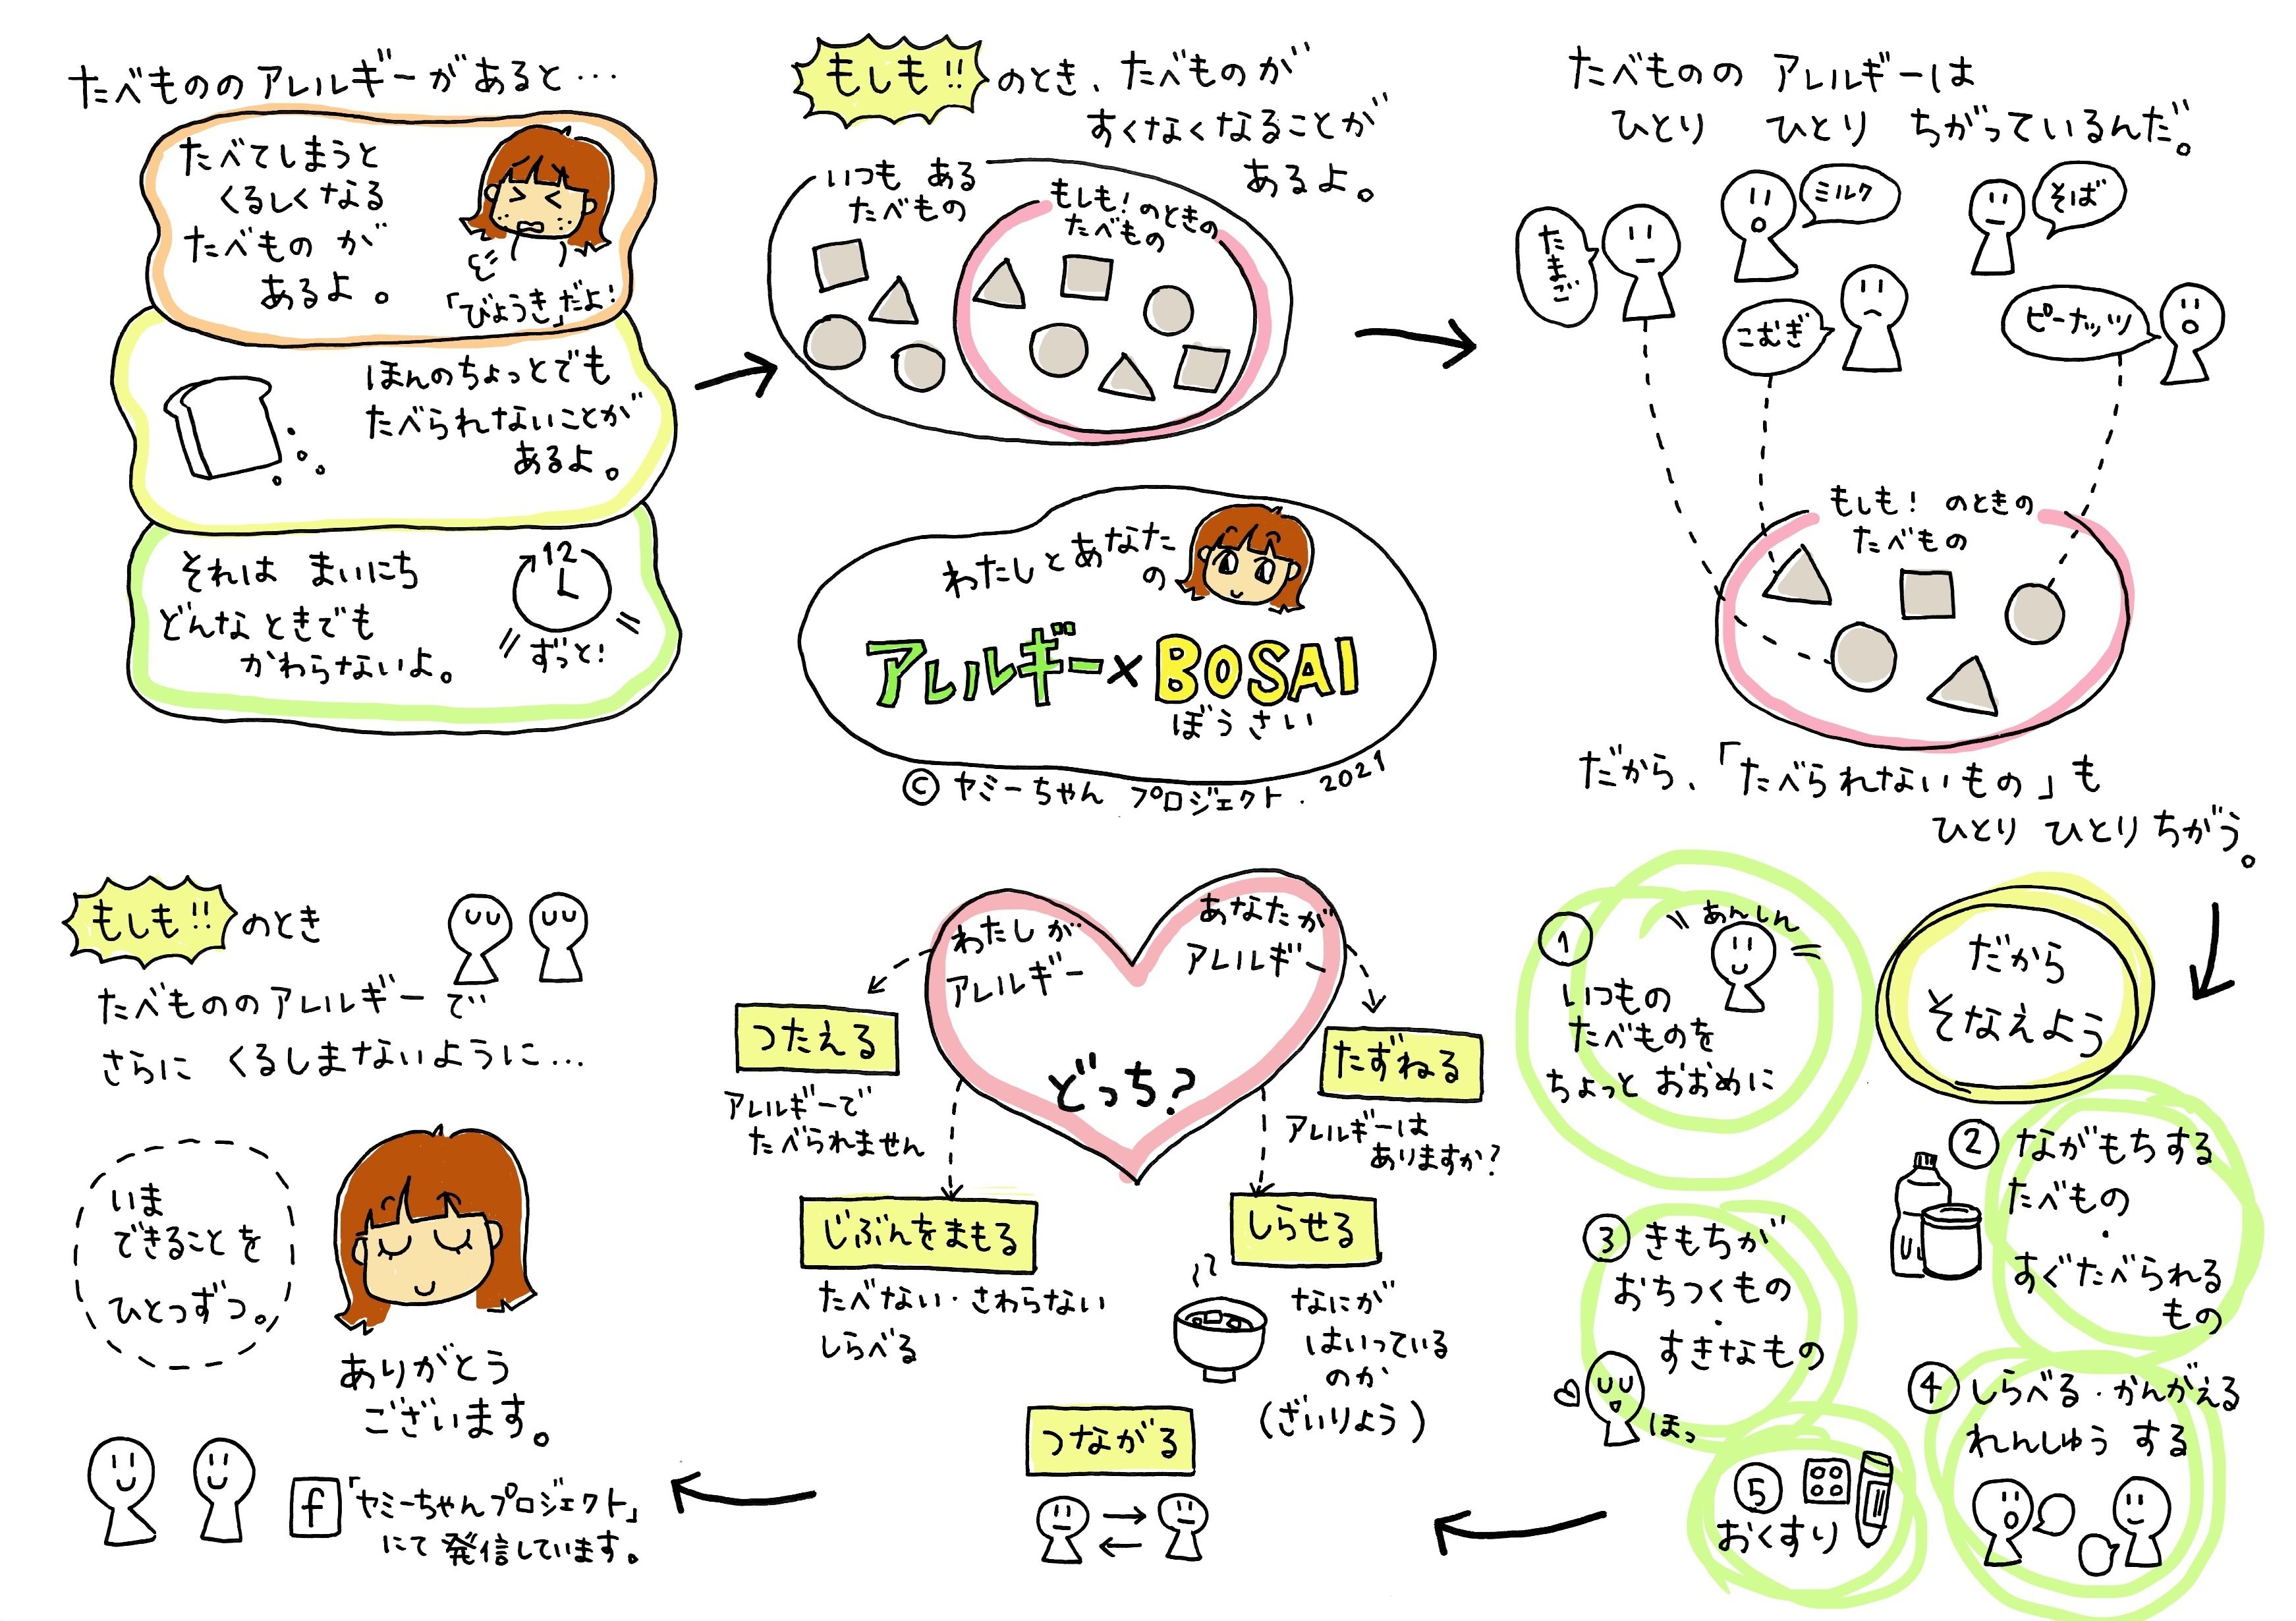 たべもののアレルギーがあると…
たべてしまうと
くるしくなる
たべもの が
あるよ。
「びょうき」だよ!
ほんのちょっとでも
たべられないことが
あるよ。
それは まいにち
どんな ときでも
かわらないよ。
12
ずっと!
もしも!! のとき、たべものが
すくなくなることが
あるよ。
いつも ある
たべもの
もしも! のときの
たべもの
たべものの アレルギーは
ひとり ひとり ちがっているんだ。
たまご
ミルク
そば
こむぎ
ピーナッツ
もしも! のときの
たべもの
だから、「たべられないもの」も
ひとり ひとり ちがう。
わたしとあなた
の
アレルギー×BOSAI
ぼうさい
© ヤミーちゃん プロジェクト. 2021
だから
そなえよう
① あんしん
いつもの
たべものを
ちょっと おおめに
② ながもちする
たべもの
・
すぐたべられる
もの
③ きもちが
おちつくもの
・
すきなもの
ほっ
④ しらべる・かんがえる
れんしゅう する
⑤
おくすり
わたしが
アレルギー
あなたが
アレルギー
どっち?
つたえる
アレルギーで
たべられません
じぶんをまもる
たべない・さわらない
しらべる
たずねる
アレルギーは
ありますか?
しらせる
なにが
はいっている
のか
(ざいりょう)
つながる
もしも!! のとき
たべもののアレルギーで
さらに くるしまないように…
いま
できることを
ひとつずつ。
ありがとう
ございます。
f 「ヤミーちゃんプロジェクト」
にて 発信しています。